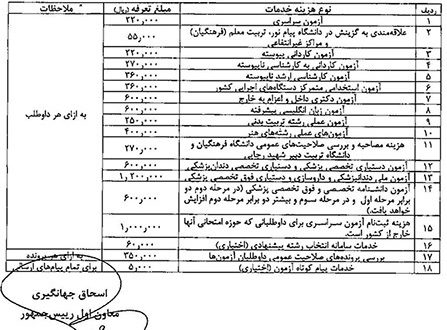 ردیف نوع هزینه خدمات مبلغ تعرفه (ریال) ملاحظات
۱ آزمون سراسری ۲۲۰,۰۰۰
۲ علاقه‌مندی به گزینش در دانشگاه پیام نور، تربیت معلم (فرهنگیان) ۵۵,۰۰۰
و مراکز غیرانتفاعی
۳ آزمون کاردانی پیوسته ۲۲۰,۰۰۰
۴ آزمون کاردانی به کارشناسی ناپیوسته ۲۷۰,۰۰۰
۵ آزمون کارشناسی ارشد ناپیوسته ۳۶۰,۰۰۰
۶ آزمون استخدامی متمرکز دستگاه‌های اجرایی کشور ۳۶۰,۰۰۰
۷ آزمون دکتری داخل و اعزام به خارج ۶۰۰,۰۰۰
۸ آزمون زبان انگلیسی پیشرفته ۶۰۰,۰۰۰
۹ آزمون عملی رشته تربیت بدنی ۲۵۰,۰۰۰
۱۰ آزمون‌های عملی رشته‌های هنر ۴۰۰,۰۰۰
به ازای هر داوطلب
۱۱ هزینه مصاحبه و بررسی صلاحیت‌های عمومی دانشگاه فرهنگیان و ۲۷۰,۰۰۰
دانشگاه تربیت دبیر شهید رجایی
۱۲ آزمون دستیاری تخصصی پزشکی و دستیاری تخصصی دندان‌پزشکی ۶۰۰,۰۰۰
۱۳ آزمون ملی دندانپزشکی و داروسازی و دستیاری فوق تخصصی پزشکی ۱,۲۰۰,۰۰۰
۱۴ آزمون دانشنامه تخصصی و فوق تخصصی پزشکی (در مرحله دوم دو ۶۰۰,۰۰۰
برابر مرحله اول و در مرحله سوم و بیشتر دو برابر مرحله دوم افزایش
خواهد یافت)
۱۵ هزینه ثبت‌نام آزمون سراسری برای داوطلبانی که حوزه امتحانی آنها ۱,۰۰۰,۰۰۰
خارج از کشور است.
۱۶ خدمات سامانه انتخاب رشته پیشنهادی (اختیاری) ۶۰,۰۰۰
۱۷ بررسی پرونده‌های صلاحیت عمومی داوطلبان آزمون‌ها ۳۵۰,۰۰۰ به ازای هر پرونده
۱۸ خدمات پیام کوتاه آزمون (اختیاری) ۵,۰۰۰ برای تمام پیام‌های ارسالی
اسحاق جهانگیری
معاون اول رییس‌جمهور